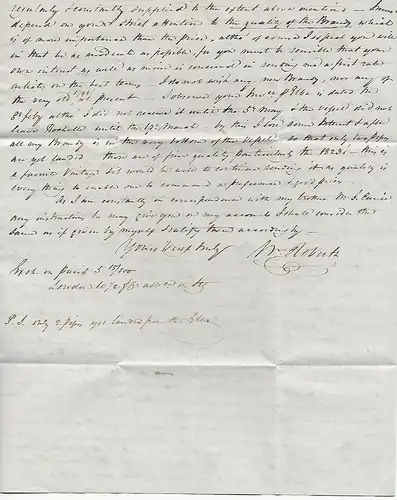 regularly & constantly supplied to the extent above mentioned — I must
depend on your strict attention to the quality of the Brandy which
is of more importance than the price, altho' of course I expect you will
in that be as moderate as possible, for you must be sensible that your
own interest as well as mine is concerned in sending me a first rate
article on the best terms — I do not wish any new Brandy, nor any of
the very old at present — I observed your Invce is dated the
8th feby altho I did not receive it until the 5th May & the vessel did not
leave Rochelle until the 19th March by this I lose some Interest & after
all my Brandy is in the very bottom of the vessel so that only two pipes
are yet landed those are of fine quality particularly the 1823s — this is
a favorite Vintage & it would be wise to continue sending it as quality is
every thing to enable me to command a preference & good price —
As I am constantly in correspondence with my brother
any instructions he may give you on my account I shall consider the
same as if given by myself & ratify them accordingly —
Yours very truly
Roberts
Exch on paris 5
London
P.S. only 2 pipes yet landed from the